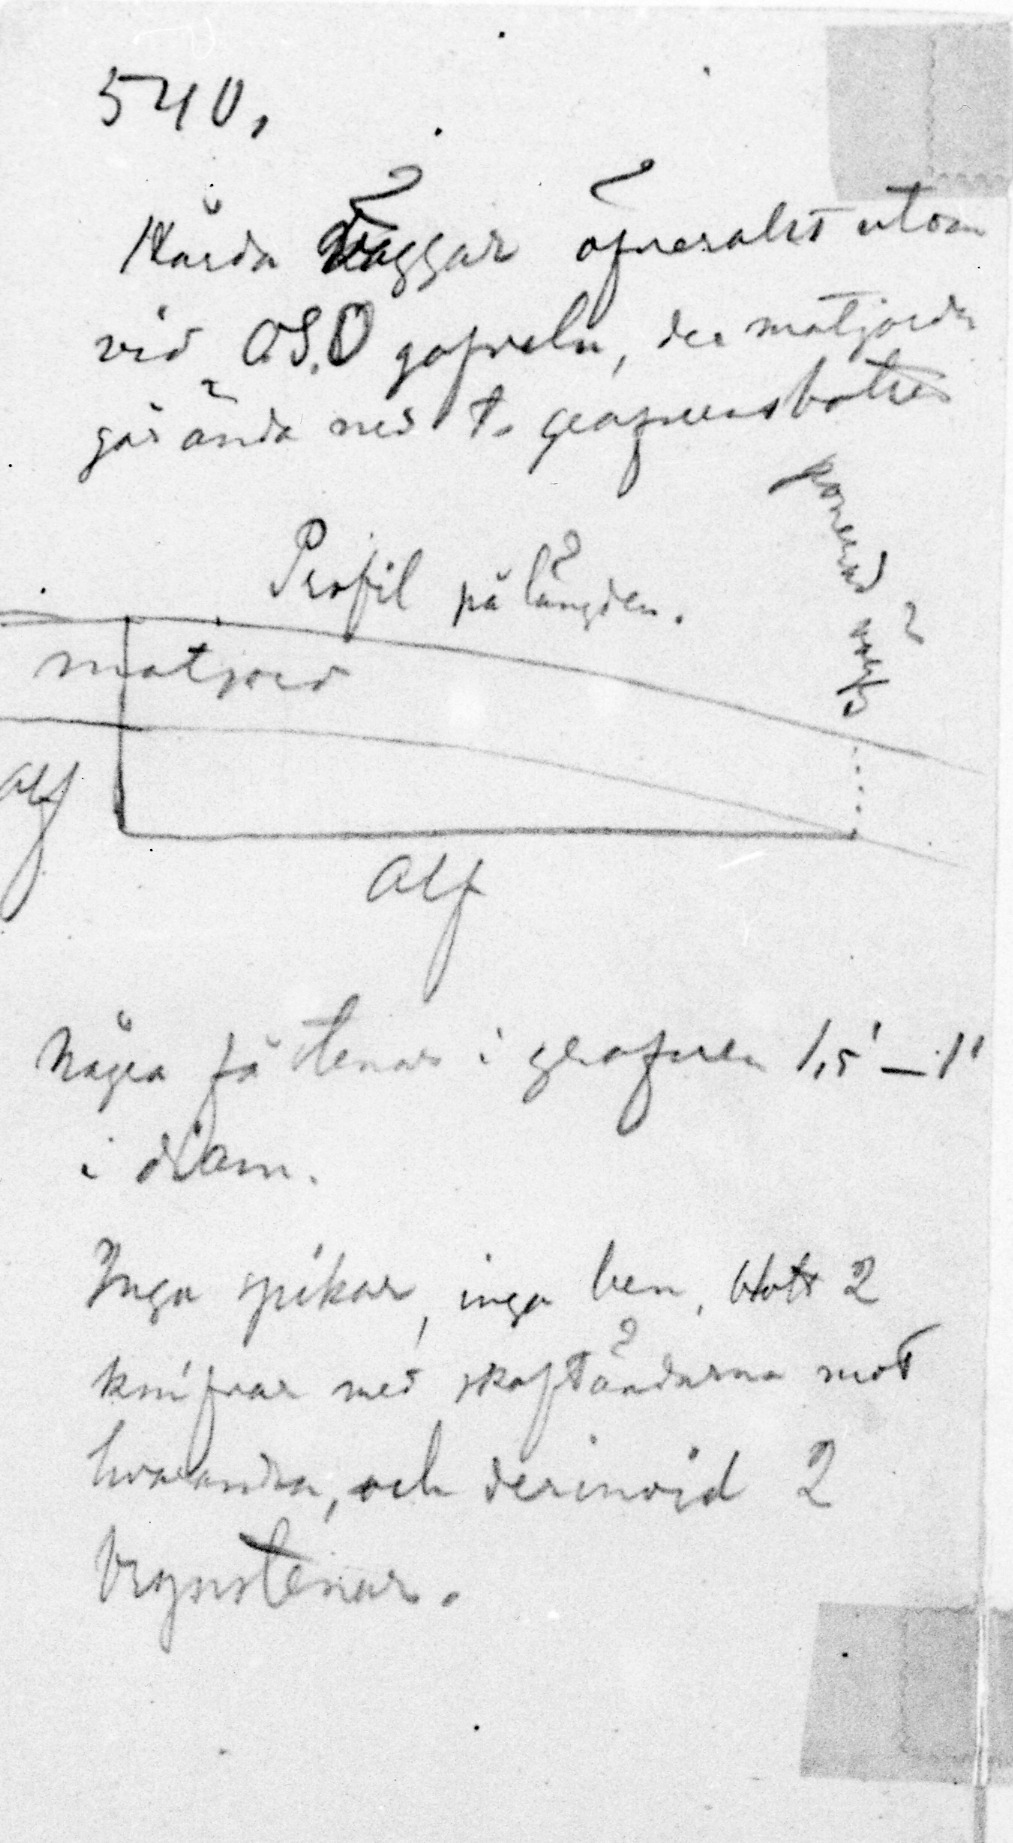 540.
Hårda väggar öfverallt utom
vid OSO gafveln, der matjorden
går ända ned t. grafvens botten
Profil på längden.
matjord
Alf
Alf
Några få stenar i grafven 1,5' – 1'
i diam.
Inga spikar, inga ben, blott 2
knifvar med skaftändarna mot
hvarandra, och derinvid 2
brynstenar.